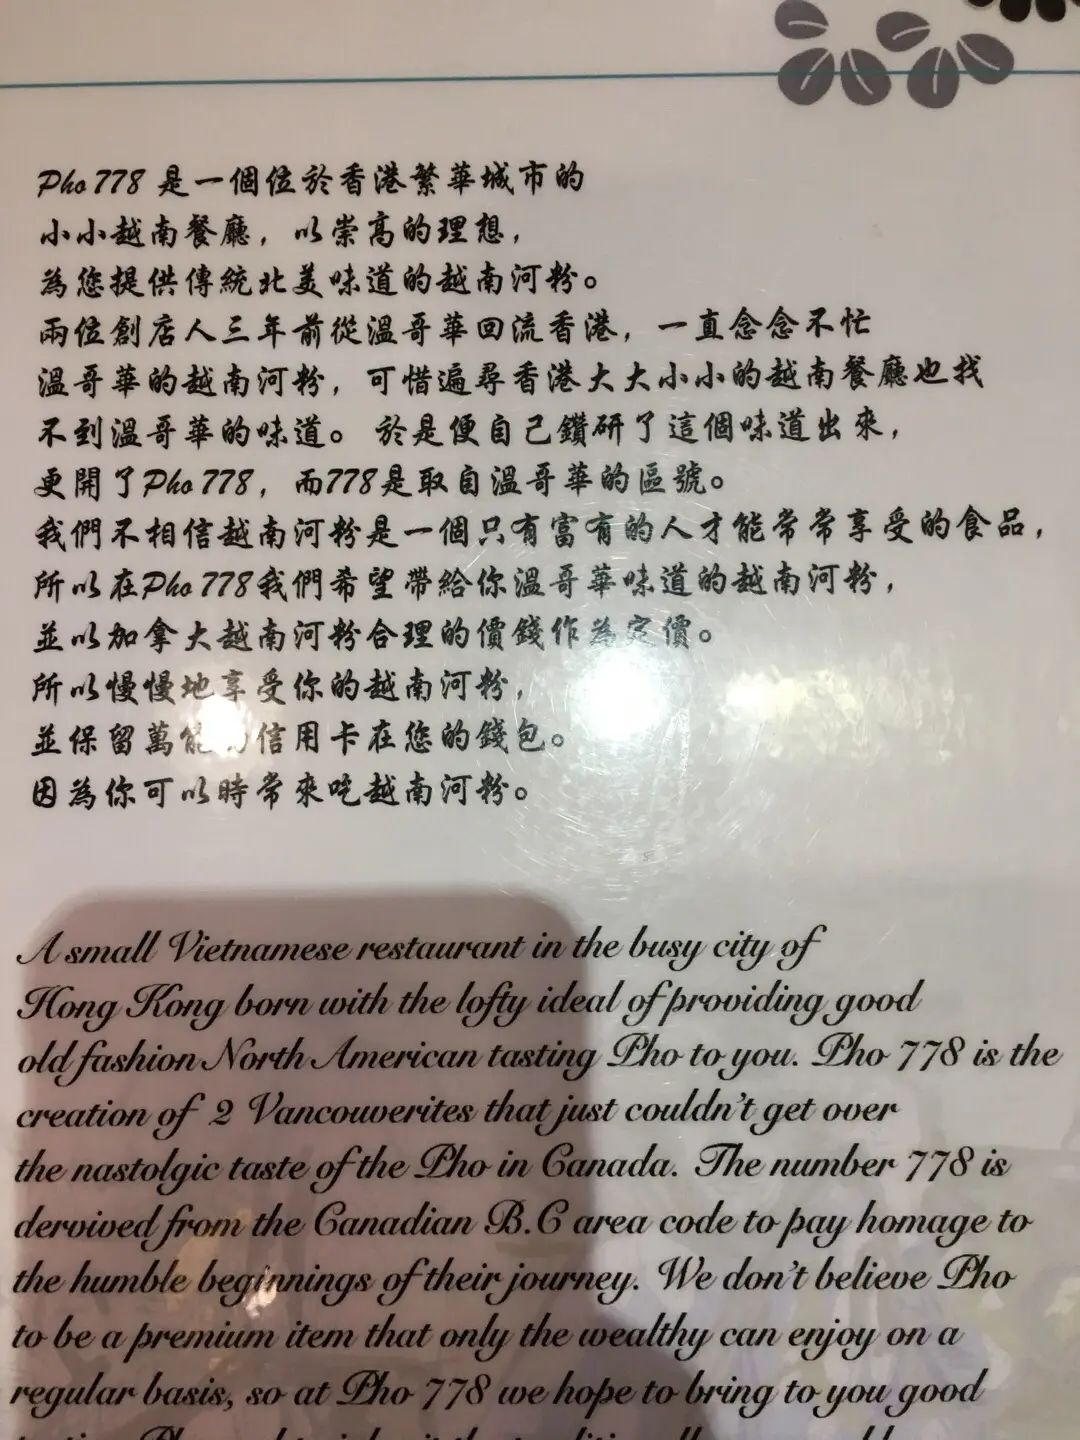 Pho 778 是一個位於香港繁華城市的
小小越南餐廳，以崇高的理想，
為您提供傳統北美味道的越南河粉。
兩位創店人三年前從溫哥華回流香港，一直念念不忙
溫哥華的越南河粉，可惜遍尋香港大大小小的越南餐廳也找
不到溫哥華的味道。 於是便自己鑽研了這個味道出來，
更開了Pho 778，而778是取自溫哥華的區號。
我們不相信越南河粉是一個只有富有的人才能常常享受的食品，
所以在Pho 778我們希望帶給你溫哥華味道的越南河粉，
並以加拿大越南河粉合理的價錢作為定價。
所以慢慢地享受你的越南河粉，
並保留萬能的信用卡在您的錢包。
因為你可以時常來吃越南河粉。
A small Vietnamese restaurant in the busy city of
Hong Kong born with the lofty ideal of providing good
old fashion North American tasting Pho to you. Pho 778 is the
creation of 2 Vancouverites that just couldn't get over
the nastolgic taste of the Pho in Canada. The number 778 is
dervived from the Canadian B.C area code to pay homage to
the humble beginnings of their journey. We don't believe Pho
to be a premium item that only the wealthy can enjoy on a
regular basis, so at Pho 778 we hope to bring to you good